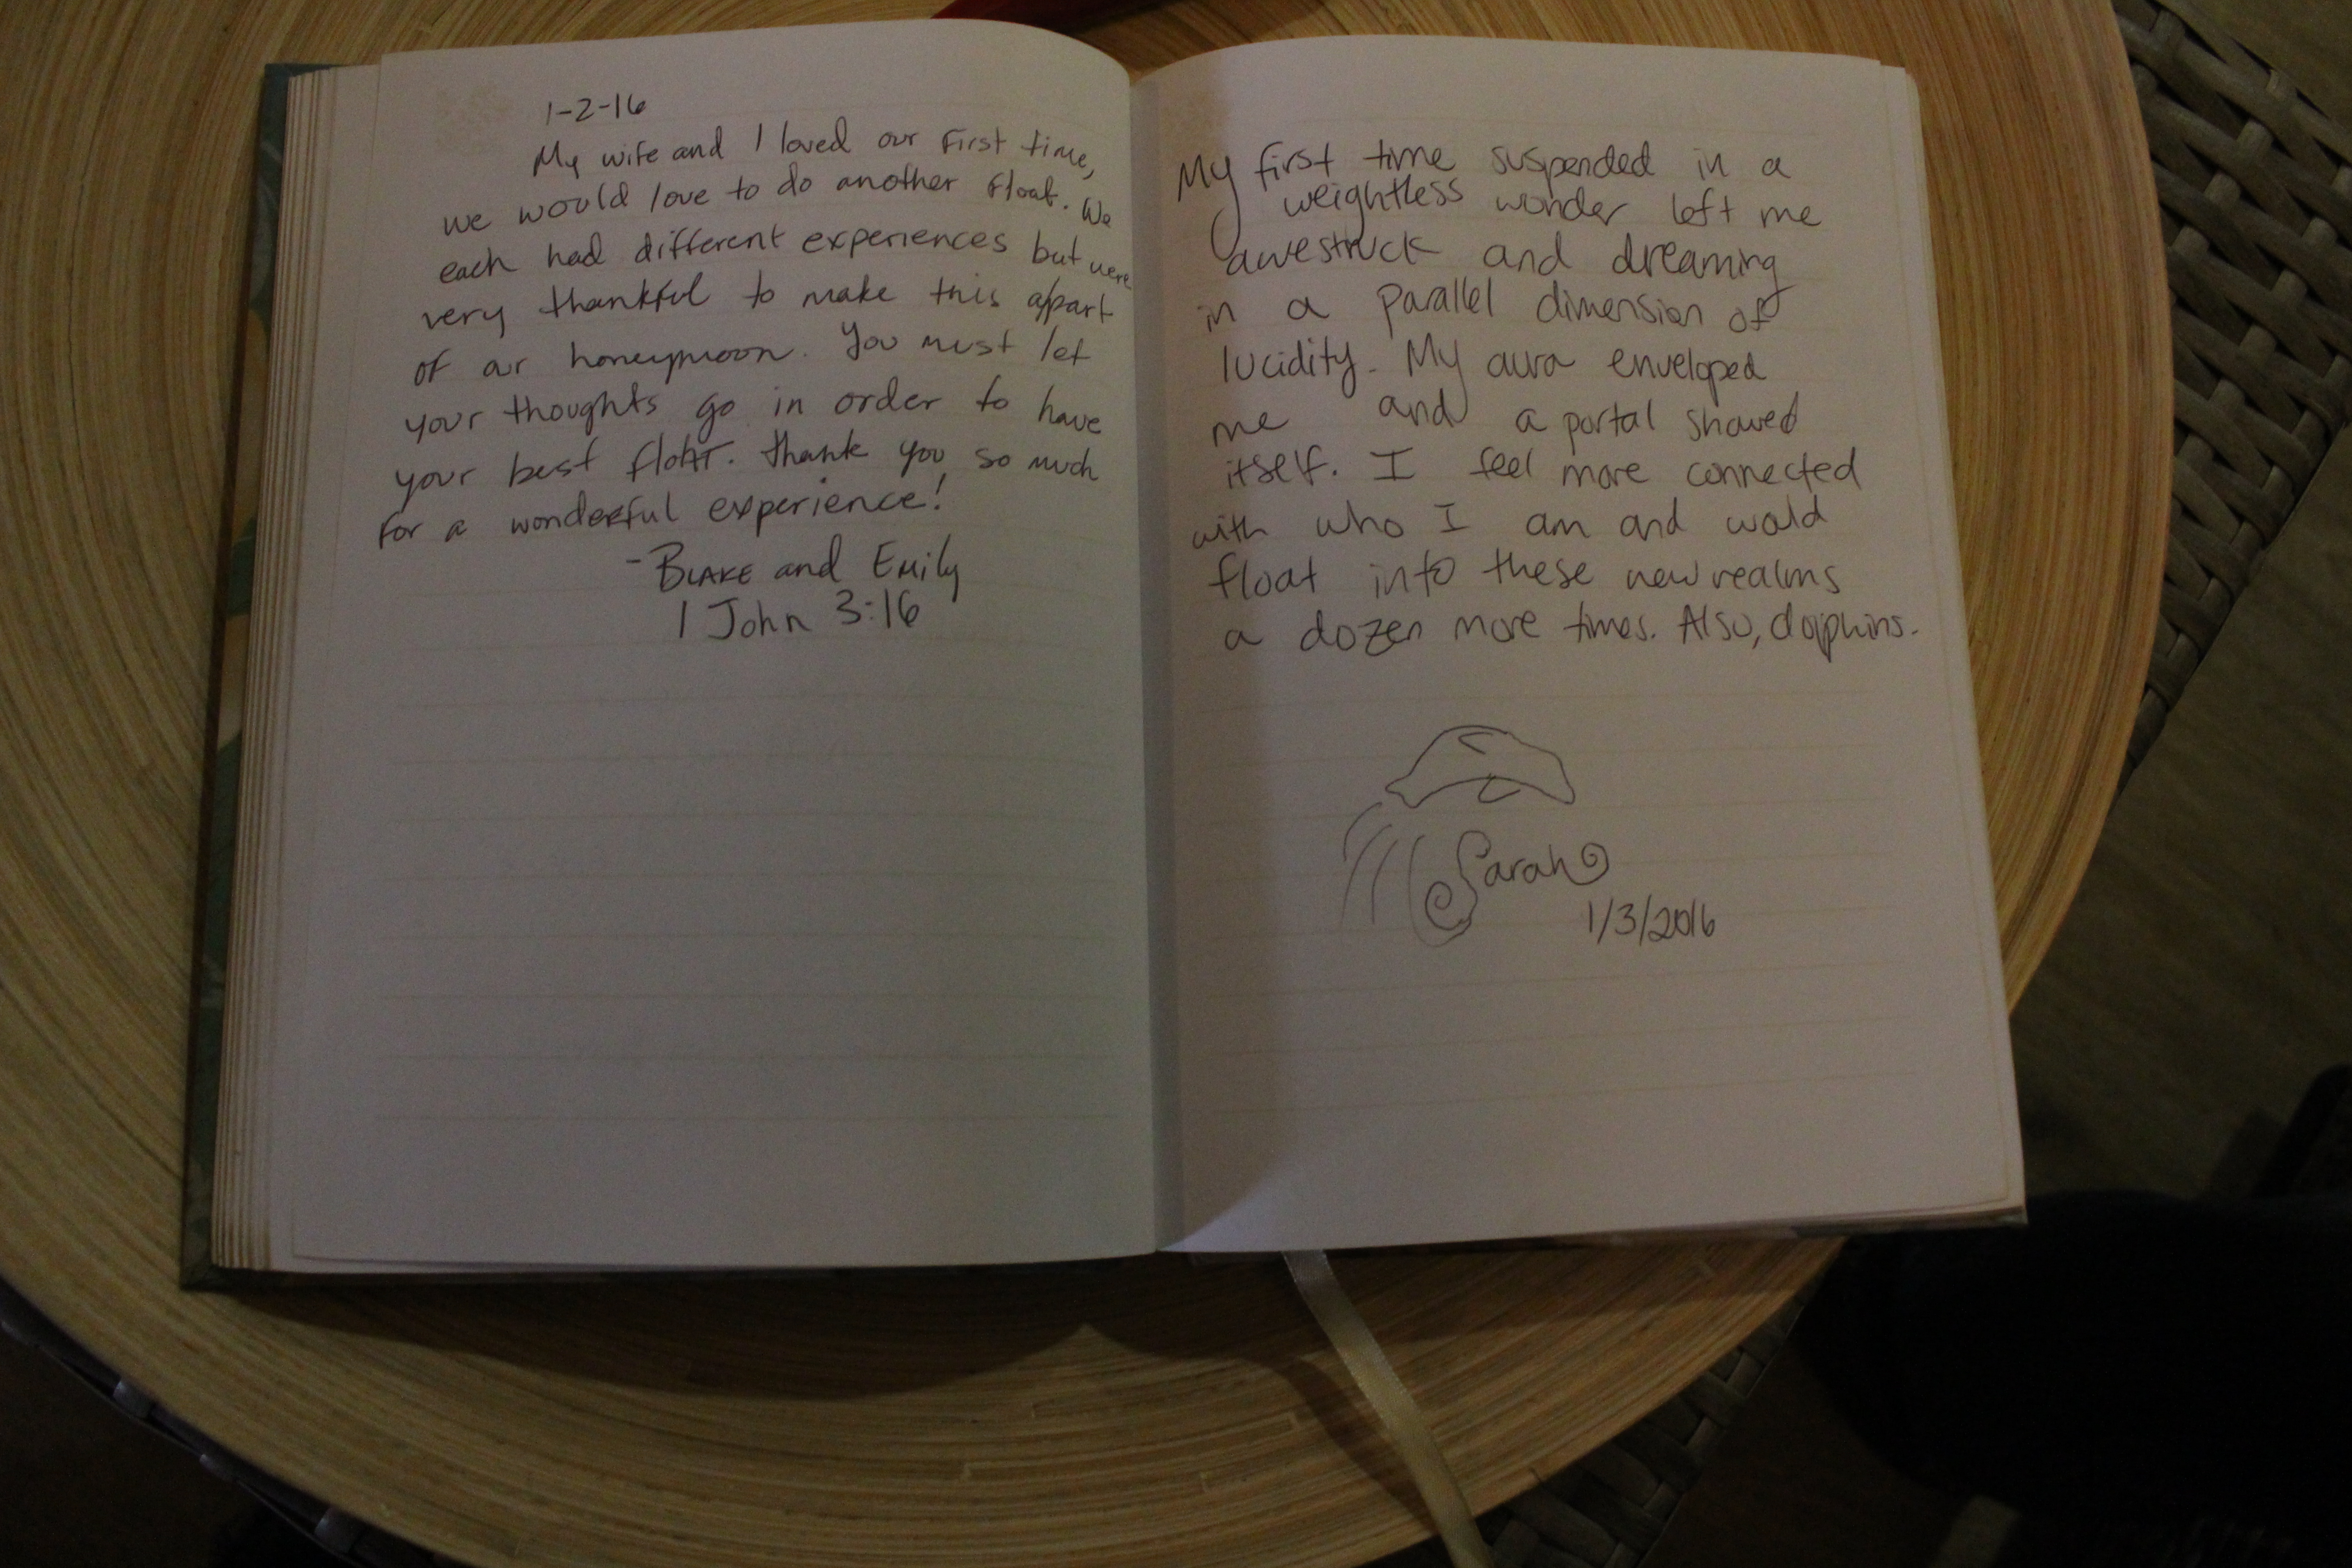 1-2-16
My wife and I loved our first time,
we would love to do another float. We
each had different experiences but were
very thankful to make this a part
of our honeymoon. You must let
your thoughts go in order to have
your best float. Thank you so much
for a wonderful experience!
- Blake and Emily
1 John 3:16
My first time suspended in a
weightless wonder left me
awestruck and dreaming
in a parallel dimension of
lucidity. My aura enveloped
me and a portal showed
itself. I feel more connected
with who I am and would
float into these new realms
a dozen more times. Also, dolphins.
Sarah
1/3/2016